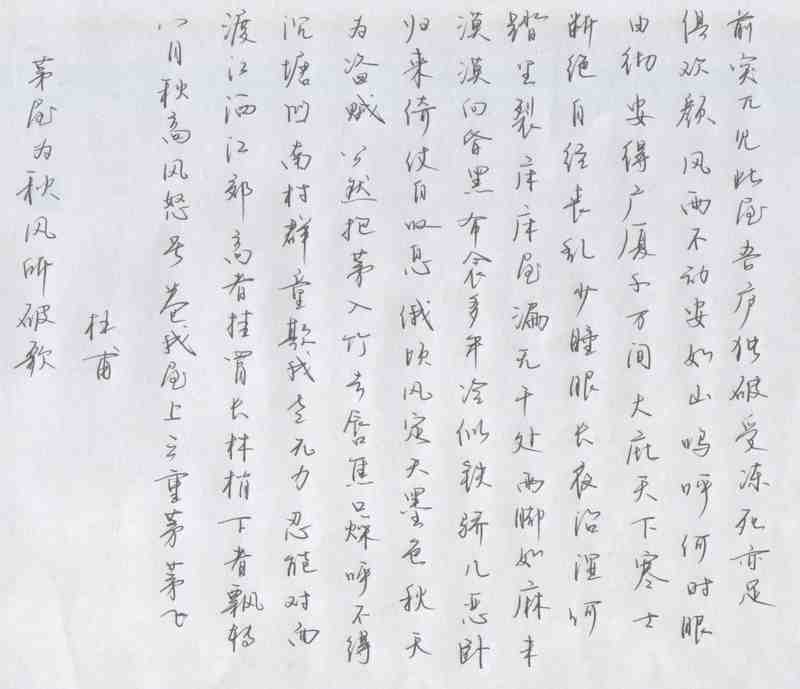 茅屋为秋风所破歌
杜甫
八月秋高风怒号卷我屋上三重茅茅飞
渡江洒江郊高者挂罥长林梢下者飘转
沉塘凹南村群童欺我老无力忍能对面
为盗贼公然抱茅入竹去唇焦口燥呼不得
归来倚仗自叹息俄顷风定云墨色秋天
漠漠向昏黑布衾多年冷似铁骄儿恶卧
踏里裂床床屋漏无干处雨脚如麻未
断绝自经丧乱少睡眠长夜沾湿何
由彻安得广厦千万间大庇天下寒士
俱欢颜风雨不动安如山呜呼何时眼
前突兀见此屋吾庐独破受冻死亦足